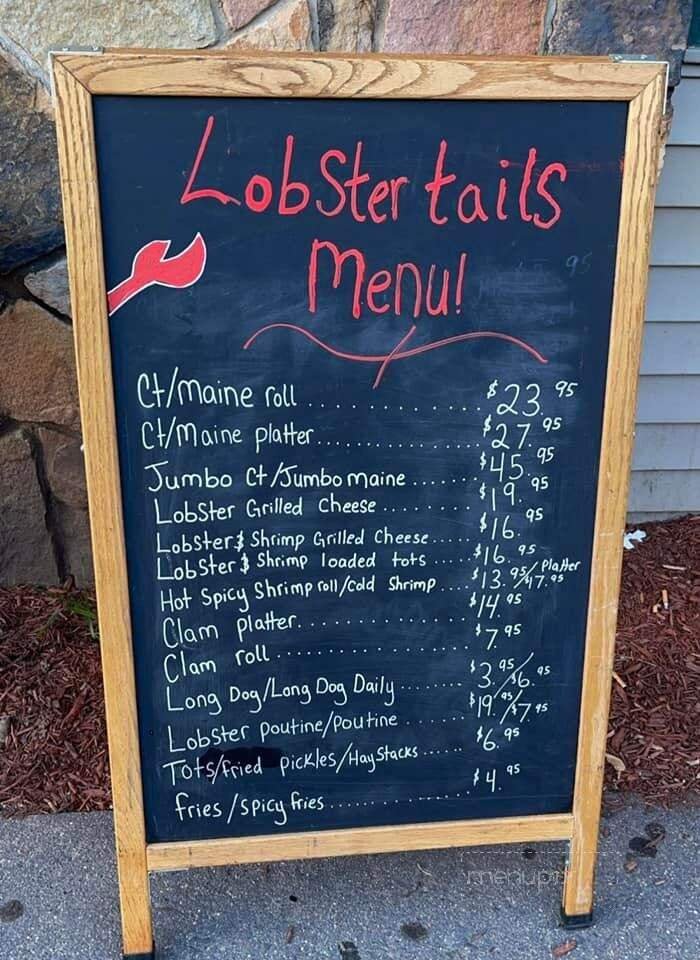 Lobster tails
Menu!
95
Ct/Maine roll ............ $23.95
Ct/Maine platter ............ $27.95
Jumbo Ct/Jumbo maine ....... $45.95
Lobster Grilled Cheese ......... $19.95
Lobster & Shrimp Grilled Cheese ..... $16.95
Lobster & Shrimp loaded tots .... $16.95
Hot Spicy Shrimp roll/Cold Shrimp .... $13.95/Platter $17.95
Clam platter ............ $14.95
Clam roll ............ $7.95
Long Dog/Long Dog Daily ....... $3.95/$6.95
Lobster Poutine/Poutine ....... $19.95/$7.95
Tots/fried pickles/HayStacks ...... $6.95
fries/spicy fries ............ $4.95
menupix